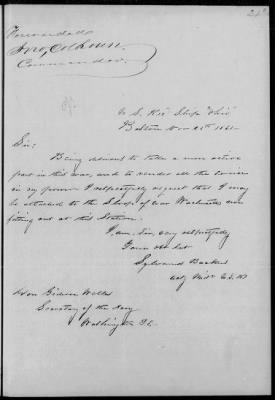 Forwarded
Jno, Calhoun.
Commander.
U. S. Rec'g Ship "Ohio"
Boston Nov 1861
Sir:
Being desirous to take a more active
part in this war, and to render all the service
in my power I respectfully request that I may
be attached to the Sloop of war Wachusett now
fitting out at this Station.
I am, Sir, very respectfully
Your obt Svt
Sylvanus Backus
Actg Mid'n U.S.N
Hon Gideon Welles
Secretary of the Navy
Washington D.C.